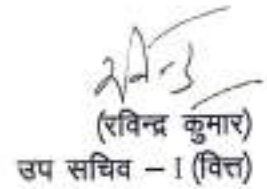 (रविन्द्र कुमार)
उप सचिव – I (वित्त)